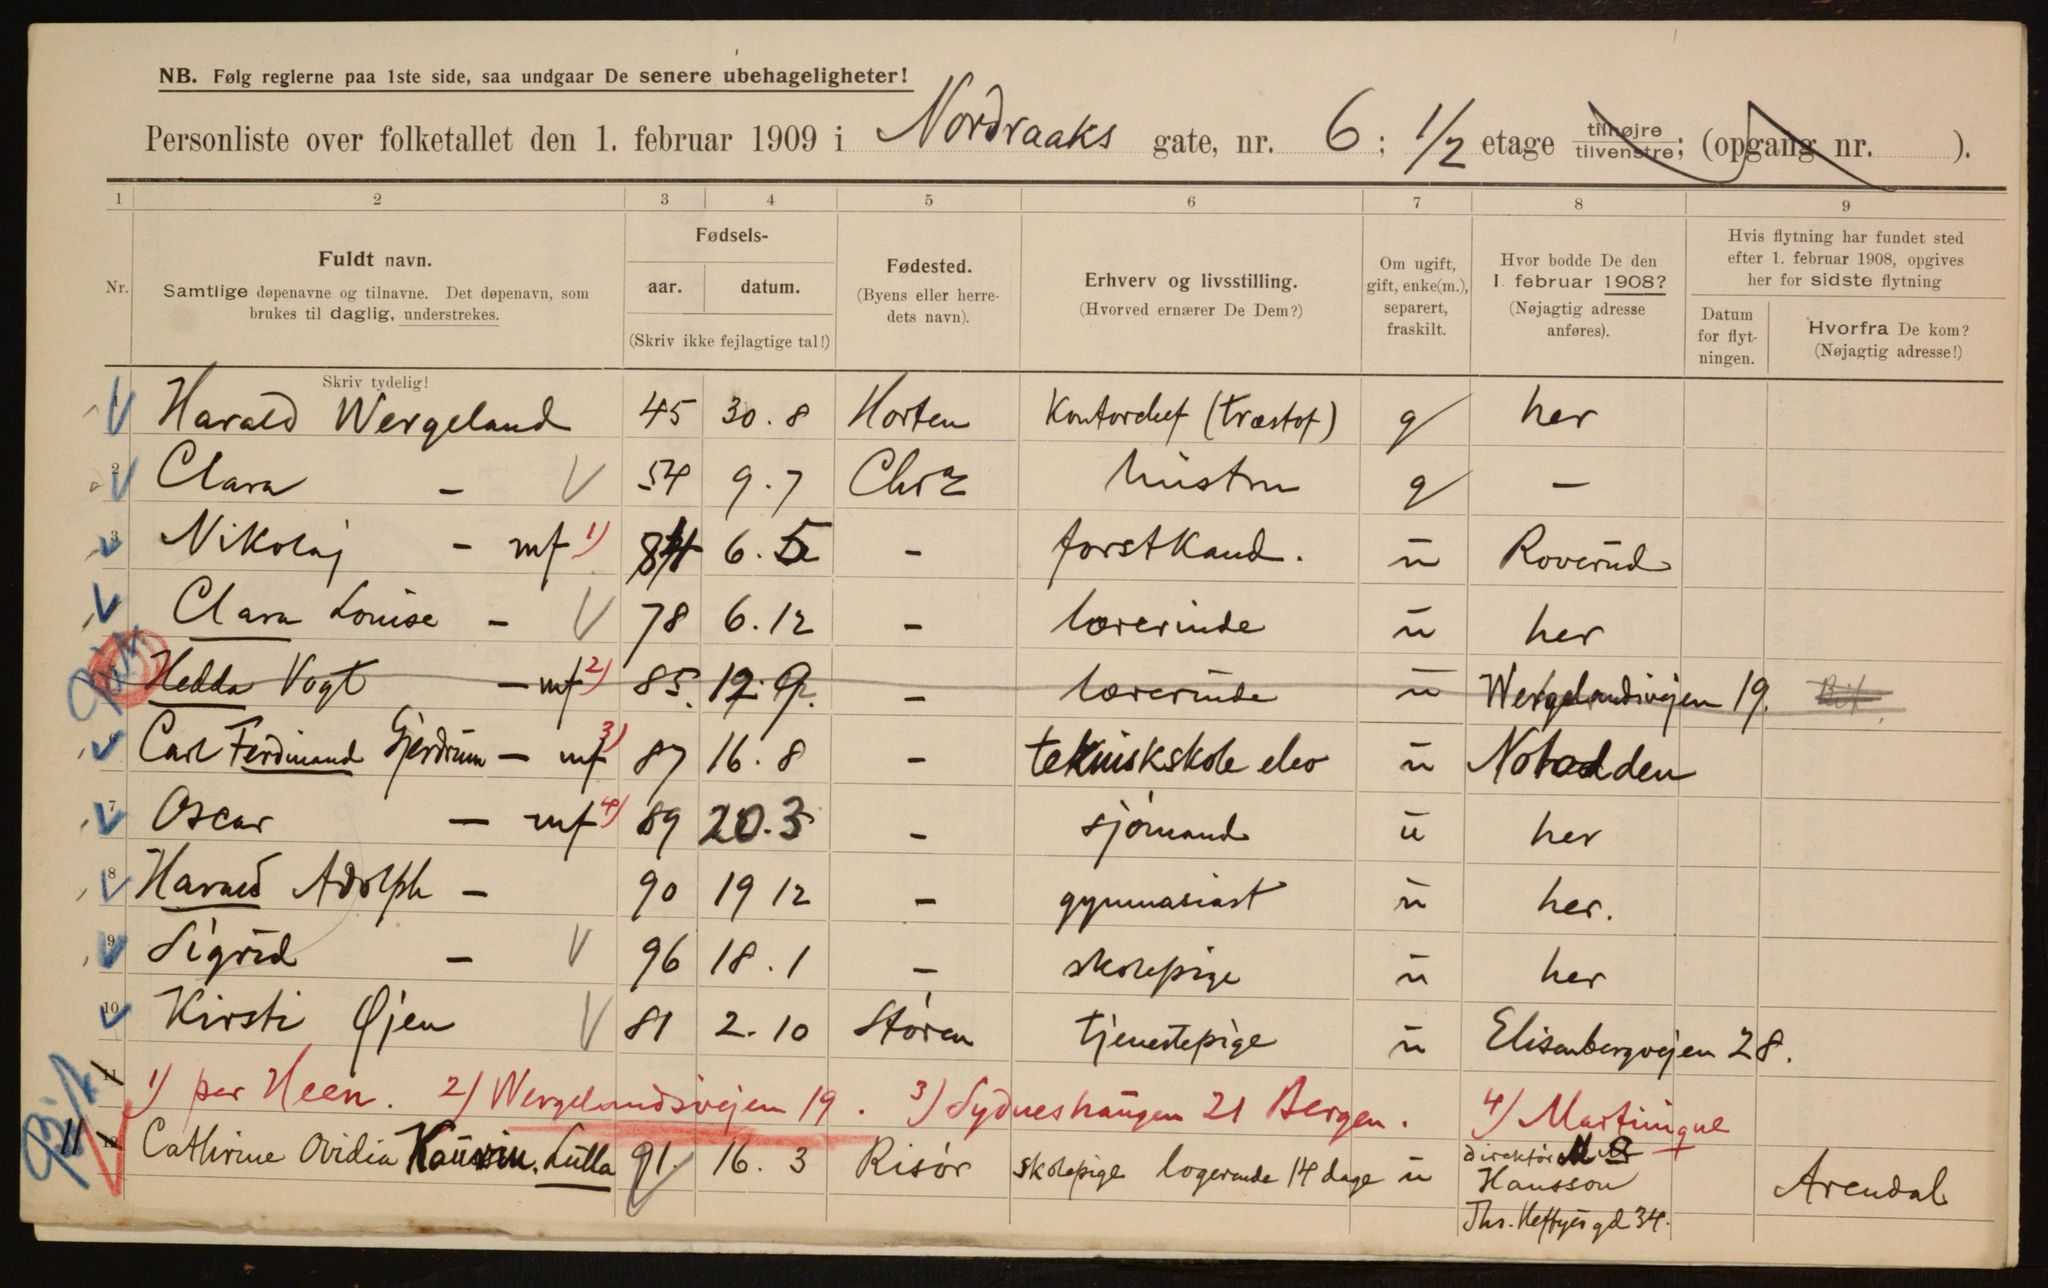 NB. Følg reglerne paa 1ste side, saa undgaar De senere ubehageligheter!
Personliste over folketallet den 1. februar 1909 i Nordraaks gate, nr. 6; 1/2 etage tilhøjre tilvenstre; (opgang nr. ).
1 2 3 4 5 6 7 8 9
Nr. Fuldt navn. Samtlige døpenavne og tilnavne. Det døpenavn, som brukes til daglig, understrekes.
Fødsels- aar. datum. (Skriv ikke fejlagtige tal!)
Fødested. (Byens eller herredets navn).
Erhverv og livsstilling. (Hvorved ernærer De Dem?)
Om ugift, gift, enke(m.), separert, fraskilt.
Hvor bodde De den 1. februar 1908? (Nøjagtig adresse anføres).
Hvis flytning har fundet sted efter 1. februar 1908, opgives her for sidste flytning
Datum for flytningen. Hvorfra De kom? (Nøjagtig adresse!)
Skriv tydelig!
1 Harald Wergeland 45 30.8 Horten Kontorchef (træstof) g her
2 Clara — 54 9.7 Chra g —
3 Nikolaj — mf 1) 84 6.5 — forstkand. u Roverud
Clara Louise — 78 6.12 — lærerinde u her
Hedda Vogt — mf 2) 85 12.9. — lærerinde u Wergelandsvejen 19.
6 Carl Ferdinand Gjerdrum — mf 3) 87 16.8 — tekniskskole elev u Notodden
7 Oscar — mf 4) 89 20.3 — sjømand u her
8 Harald Adolph — 90 19 12 — gymnasiast u her.
9 Sigrid — 96 18.1 — skolepige u her
10 Kirsti Øjen 81 2.10 Støren tjenestepige u Elisenbergvejen 28.
11 1) per Heen. 2) Wergelandsvejen 19. 3) Sydneshaugen 21 Bergen. 4) Martinique
11 12 Cathrine Ovidia Lulla 91. 16.3 Risør skolepige logerende 14 dage u direktør Hansson Ths. Heftyes gd 34. Arendal